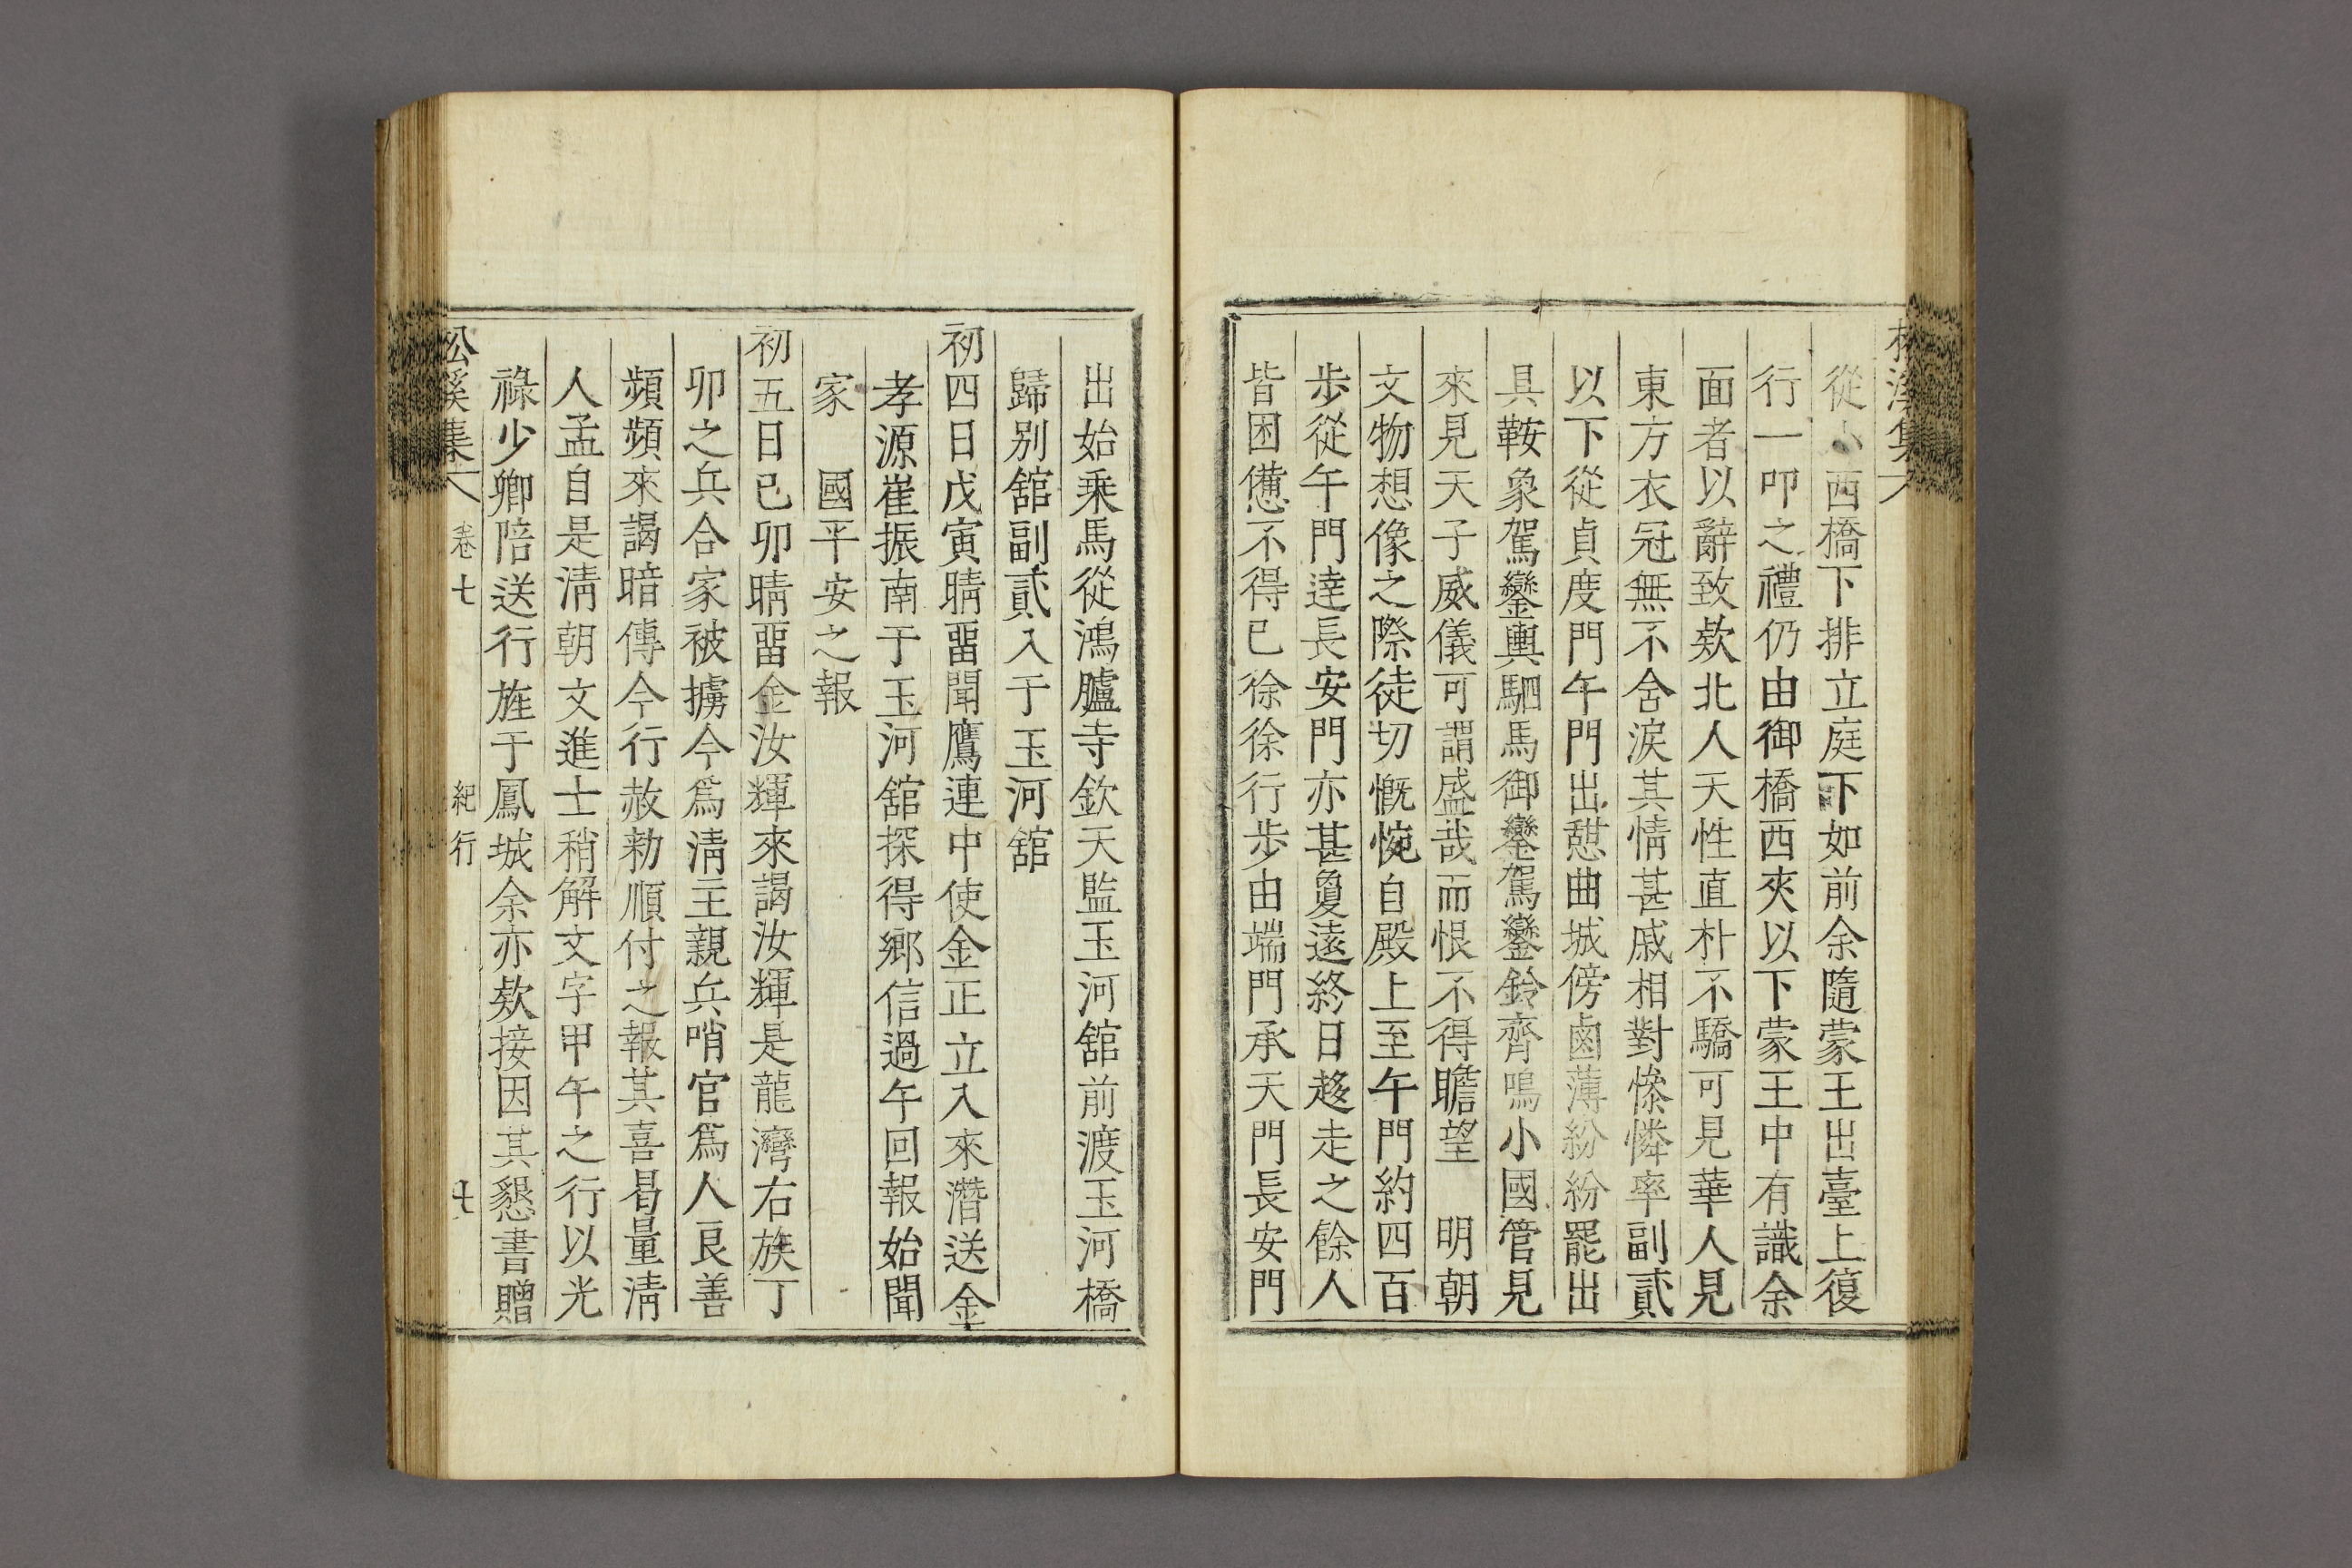 松溪集
從小西橋下排立庭下如前余隨蒙王出臺上復
行一叩之禮仍由御橋西夾以下蒙王中有識余
面者以辭致欵北人天性直朴不驕可見華人見
東方衣冠無不含淚其情甚戚相對慘憐率副貳
以下從貞度門午門出憇曲城傍鹵薄紛紛罷出
具鞍象駕鑾輿駟馬御鑾駕鑾鈴齊鳴小國管見
來見天子威儀可謂盛哉而恨不得瞻望 明朝
文物想像之際徒切慨惋自殿上至午門約四百
步從午門達長安門亦甚敻遠終日趍走之餘人
皆困憊不得已徐徐行步由端門承天門長安門
出始乗馬從鴻臚寺欽天監玉河舘前渡玉河橋
歸别舘副貳入于玉河舘
初四日戊寅晴畱聞鷹連中使金正立入來潛送金
孝源崔振南于玉河舘探得鄉信過午回報始聞
家 國平安之報
初五日己卯晴畱金汝輝來謁汝輝是龍灣右族丁
卯之兵合家被擄今爲淸主親兵哨官爲人良善
頻頻來謁暗傳今行赦勑順付之報其喜曷量淸
人孟自是淸朝文進士稍解文字甲午之行以光
祿少卿陪送行旌于鳳城余亦欵接因其懇書贈
松溪集 卷七 紀行